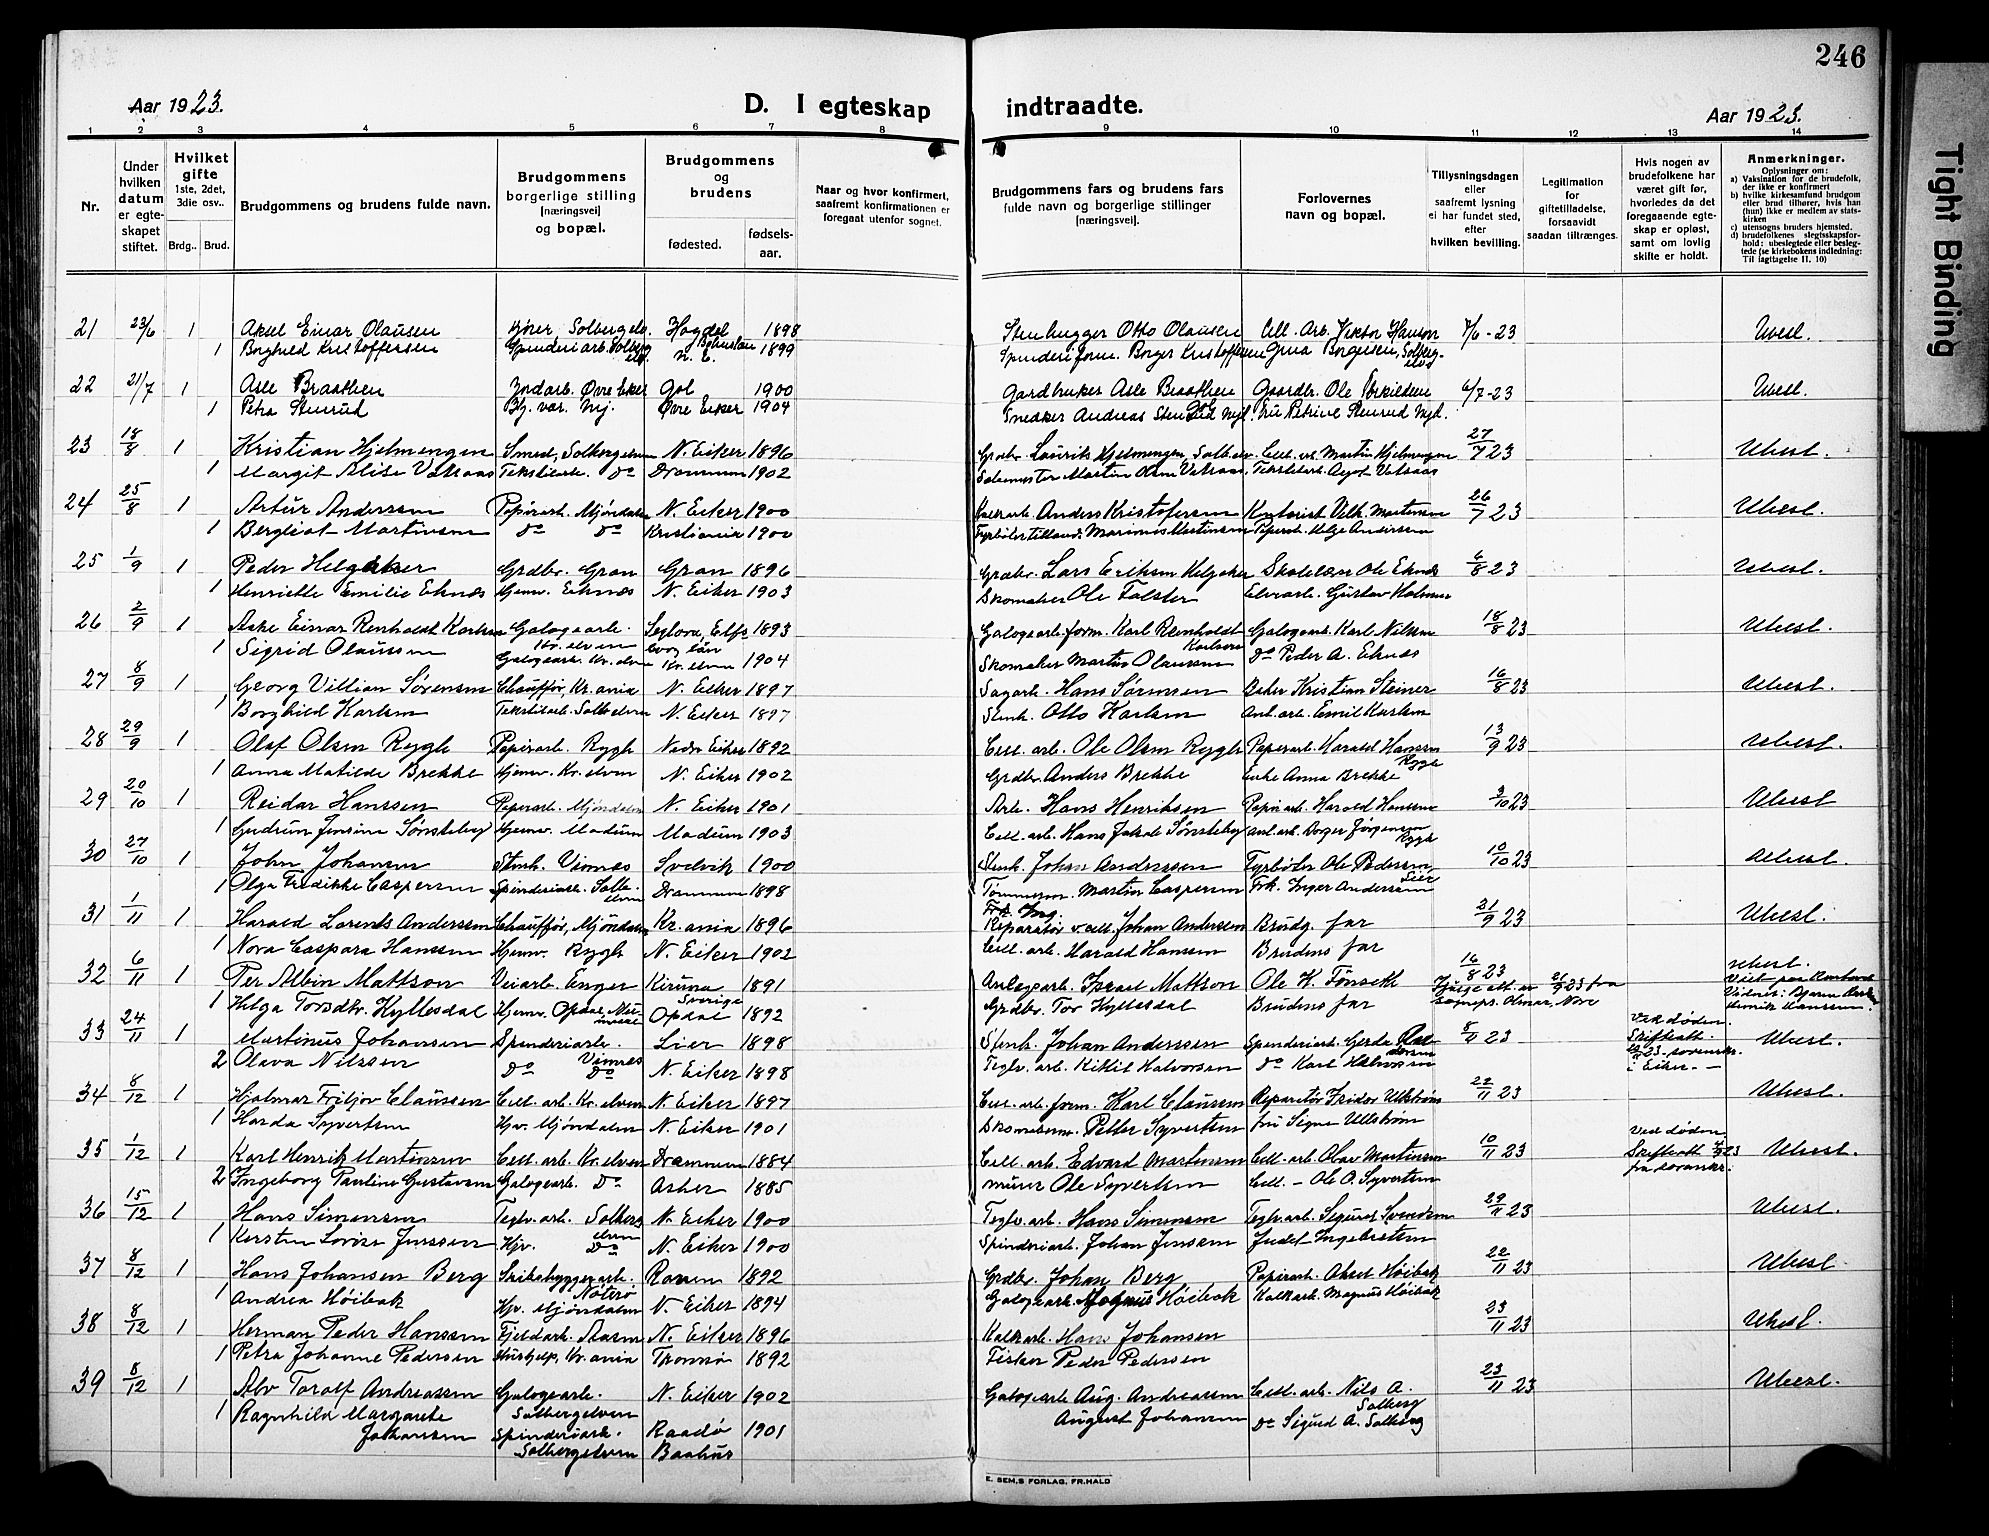 246
Aar 1923.
D. I egteskap indtraadte.
Aar 1923.
1 2 3 4 5 6 7 8 9 10 11 12 13 14
Nr.
Under hvilken datum er egteskapet stiftet.
Hvilket gifte 1ste, 2det, 3die osv..
Brdg.. Brud.
Brudgommens og brudens fulde navn.
Brudgommens borgerlige stilling [næringsvei] og bopæl.
Brudgommens og brudens
fødested.
fødselsaar.
Naar og hvor konfirmert, saafremt konfirmationen er foregaat utenfor sognet.
Brudgommens fars og brudens fars fulde navn og borgerlige stillinger [næringsvei].
Forlovernes navn og bopæl.
Tillysningsdagen eller saafremt lysning ei har fundet sted, efter hvilken bevilling.
Legitimation for giftetilladelse, forsaavidt saadan tiltrænges.
Hvis nogen av brudefolkene har været gift før, hvorledes da det foregaaende egteskap er opløst, samt om lovlig skifte er holdt.
Anmerkninger.
Oplysninger om:
a) Vaksination for de brudefolk, der ikke er konfirmert
b) hvilke kirkesamfund brudgom eller brud tilhører, hvis han (hun) ikke er medlem av statskirken
c) utensogns bruders hjemsted.
d) brudefolkenes slegtsskapsforhold: ubeslegtede eller beslegtede (se kirkebokens indledning: Til iagttagelse II. 10)
21 23/6 1 Aksel Einar Olausen Kjører Solbergelv. 1898 Stenhugger Otto Olausen Cell. Arb. Viktor Hanson 7/6-23 Ubesl.
1 Borghild Kristoffersen Spinderiarb. Solberg elv N. E. 1899 Spinderiform. Borger Kristoffersen
22 21/7 1 Asle Braathen Jordarb. Øvre Eker Gol 1900 Gardbruker Asle Braathen Gaardbr. Ole Torkildsen 6/7-23 Ubesl.
1 Petra Stenrud Øvre Eiker 1904 Snedker Andreas Stenrud
23 18/8 1 Kristian Hjelmengen Smed, Solbergelven N. Eiker 1896 Laurits Hjelmengen, Solb.elv. Cell. arb. Martin Hjelmengen 27/7 23 Ubesl.
1 Margit Alise Vatsaas Tekstilarb. Do Drammen 1902
24 25/8 1 Artur Andersen Papirarb. Mjøndalen N. Eiker 1900 Anders Kristofersen Kontorist Vilh. Martinsen 26/7 23 Ubesl.
1 Bergliot Martinsen Do Do Kristiania 1900 Papirarb. Helge Andersen
25 1/9 1 Peder Helgaker Grdbr. Gran Gran 1896 Grdbr. Lars Eriksen Helgaker Skolelærer Ole Eknæs 6/8 23 Ubesl.
1 Henriette Emilie Eknæs Hjemv. Eknæs N. Eiker 1903 Skomaker Ole Falster Elvearb. Gustav Holmen
26 2/9 1 Aske Einar Renholdt Karlsen Galogearb. Kr. elven 1893 Galogearb. form. Karl Renholdt Karlsen Galogearb. Karl Nilsen 18/8 23 Ubesl.
1 Sigrid Olaussen Galogearb. Kr. elven Kr. elven 1904 Skomaker Martin Olaussen Do Peder A. Eknæs
27 8/9 1 Georg Villian Sørensen Chauffør, Kr.ania N. Eiker 1897 Sagarb. Hans Sørensen Kristian Steiner 16/8 23 Ubesl.
1 Borghild Karlsen Tekstilarb. Solb.elven N. Eiker 1897 Stenh. Otto Karlsen Anl.arb. Emil Karlsen
28 29/9 1 Olaf Olsen Rygh Papirarb. Rygh Nedre Eiker 1892 Cell. arb. Ole Olsen Rygh Papirarb. Harald Hansen Rygh 13/9 23 Ubesl.
1 Anna Matilde Brekke Hjemv. Kr. elven N. Eiker 1902 Grdbr. Anders Brekke Enke Anna Brekke
29 20/10 1 Reidar Hanssen Papirarb. Mjøndalen N. Eiker 1901 Arb. Hans Henriksen Papirarb. Harald Hansen 3/10 23 Ubesl
1 Gudrun Jensine Sønsteby Hjemv. Modum Modum 1903 Cell. arb. Hans Jakob Sønsteby
30 27/10 1 John Johansen Stenh. Vimnes Svelvik 1900 Stenh. Johan Anderssen Fyrbøter Ole Pedersen, Lier 10/10 23 Ubesl.
1 Olga Fredikke Caspersen Spinderiarb. Solb. elven Drammen 1898 Tømmerm. Martin Caspersen Frk. Inger Andersen
31 1/11 1 Harald Lorents Anderssen Chauffør, Mjøndalen Kr.ania 1896 Reparatør v. cell. Johan Andersen Brudg. far 21/9 23 Ubesl.
1 Nora Caspara Hanssen Hjemv. Rygh N. Eiker 1902 Cell. arb. Harald Hansen Brudens far
32 6/11 1 Per Albin Mattson Veiarb. Enger Kiruna Sverige 1891 Anlegsarb. Israel Mattson Ole K. Fønseth 16/8 23 Ubesl.
1 Helga Torsdtr. Kyllesdal Hjemv. Opdal, Numedal Opdal 1892 Grdbr. Tor Kyllesdal Brudens far
33 24/11 1 Martinus Johansen Spinderiarb. Vimnes Lier 1898 Stenh. Johan Anderssen 8/11 23 Ved døden. Skifteatt. Ubesl.
2 Olava Nilssen Do Do N. Eiker 1898 Teglv. arb. Kittil Halvorsen Do Karl Halvorsen i Eiker.
34 8/12 1 Hjalmar Fritjov Claussen Cell. arb. Kr. elven N. Eiker 1897 Cell. arb. form. Karl Claussen Reparatør Fridor Ullstrøm 22/11 23 Ubesl.
1 Harda Syvertsen Hjv. Mjøndalen N. Eiker 1901 Skomakerm. Petter Syvertsen fru Signe Ullstrøm
35 1/12 1 Karl Henrik Martinsen Cell. arb. Kr. elven Drammen 1884 Cell. arb. Edvard Martinsen Cell. arb. Olav Martinsen 10/11 23 Ved døden Skifteatt. Ubesl.
2 Ingeborg Pauline Gustavsen Galogearb. Do Asker 1885 Murer Ole Syvertsen Cell. – Ole O. Syvertsen
36 15/12 1 Hans Simensen Teglv. arb. Solberg elven N. Eiker 1900 Teglv. arb. Hans Simensen Teglv. arb. Sigurd Svendsen 29/11 23 Ubesl.
1 Kersten Lovise Jenssen Hjv. Do N. Eiker 1900 Spinderiarb. Johan Jensen Judel Ingebretsen
37 8/12 1 Hans Johansen Berg Skibsbyggerarb. Nøterø Ramnes 1892 Grdbr. Johan Berg Papirarb. Aksel Høibak 22/11 23 Ubesl.
1 Andrea Høibak Hjv. Mjøndalen N. Eiker 1894 Galogearb. Magnus Høibak Kalkarb. Magnus Høibak
38 8/12 1 Herman Peder Hanssen Fjeldarb. Aasen N. Eiker 1896 Kalkarb. Hans Johansen 23/11 23 Ubesl.
1 Petra Johanne Pedersen Hushjelp, Kr.ania Tromsø 1892 Fisker Peder Pedersen
39 8/12 1 Alv Toralf Andreassen Galogearb. Solbergelven N. Eiker 1902 Galogearb. Aug. Andreassen Cell. arb. Nils A. Solberg 23/11 23 Ubesl.
1 Ragnhild Margarete Johanssen Spinderiarb. Solbergelven Raadø Baahus 1901 August Johansen Do Sigurd A. Solberg
E. SEM,S FORLAG, FR.HALD
Tight Binding